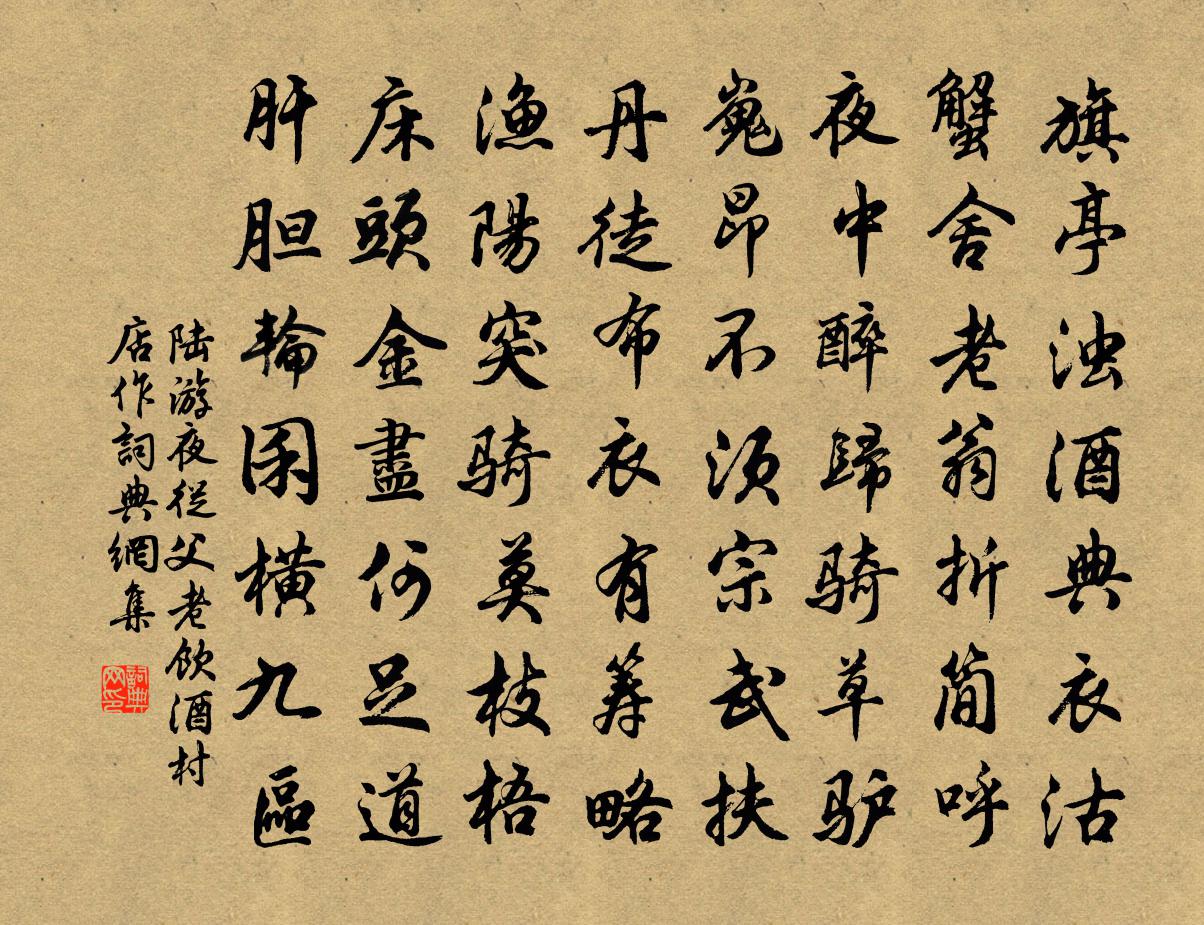 旗亭浊酒典衣沽
蟹舍老翁折简呼
夜中醉歸骑草驴
嵬昂不须宗武扶
丹徒布衣有筹略
漁陽突骑莫枝梧
床頭金盡何足道
肝胆輪囷横九區
陆游夜從父老飲酒村
店作詞典網集
詞典
网印